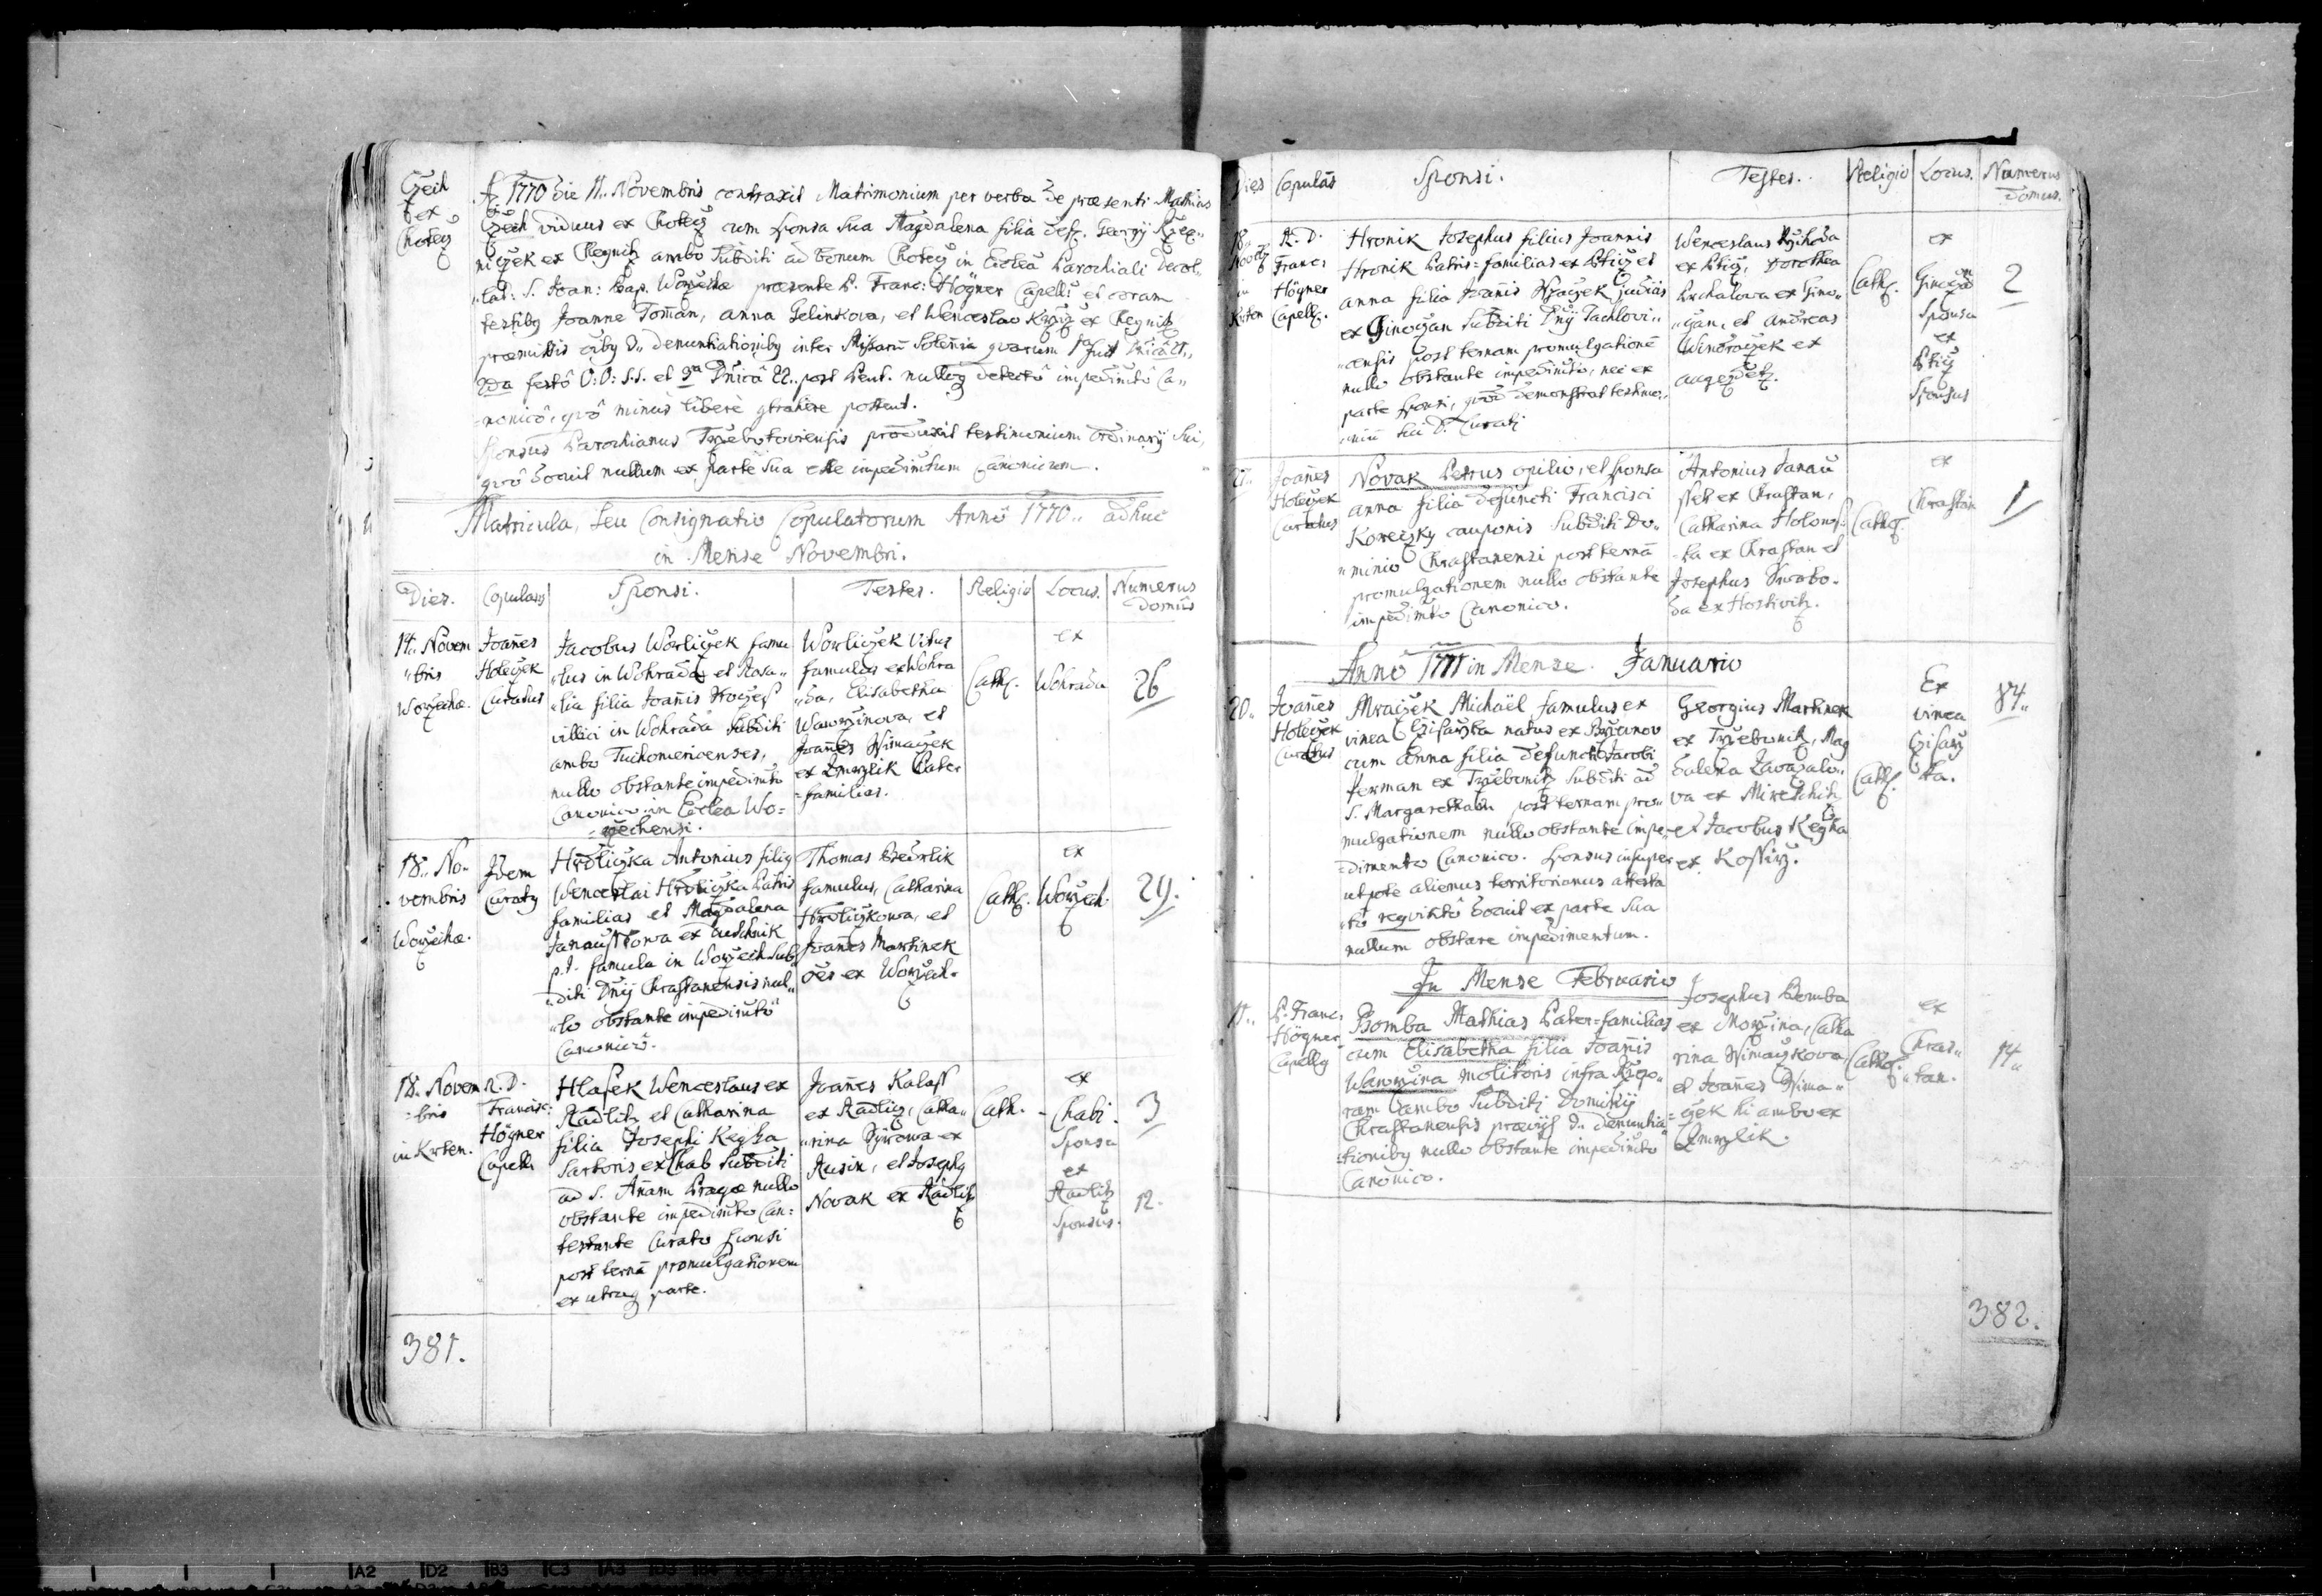 Czech
ex
Choteẏ
A: 1770 die 11.. Novembris contraxit Matrimonium per verba de præsenti Mathias
Czech viduus ex Choteẏ cum sponsa sua Magdalena filia def. Georgij
ex Chegnitz ambo subditi ad bonum Choteẏ in Eccleâ Parochiali Decol..
lat: S. Joan: Bap. præsente P. Franc: Högner Capell: et coram
testibȝ Joanne Toman, anna Gelinkova, et Wenceslao ex Chegnitz
præmissis 3.. denuntiationibȝ inter Missarū Solēnia quarum 1ma fuit
2da festô O: O: S.S. et 3a Dnicâ 22.. post Pent. nulloqȝ detectô impedimtô Ca..
=nonicô, quô minùs liberè ꝯtrahere possent.
Sponsus Parochianus produxit testimonium ordinarij sui,
quô docuit nullum ex parte sua esse impedimtum Canonicum.
Matricula, seu Consignatio Copulatorum Annô 1770.. adhuc
in Mense Novembri.
Dies. Copulans Sponsi. Testes. Religio Locus. Numerus
Domûs
14.. Novem
..bris
Joañes
Holeczek
Curatus
Jacobus Worliczek famu
..lus in Wohrada et Rosa..
..lia filia Joañis
villici in Wohrada subditi
ambo Tuchomericenses,
nullo obstante impedimto
Canonico in Ecclea Wo=
=rzechensi.
Worliczek Vitus
famulus ex Wohra
..da, Elisabetha
Wawrzinova, et
Joañes
ex Zmrzlik Pater
=familias.
Cath.
ex
Wohrada
26
18.. No-
vembris
Idem
Curatȝ
Hrdliczka Antonius filiȝ
Wenceslai Hrdliczka Patris
familias et Magdalena
ex
p.t. famula in Worzech sub
..diti Dnij Chrastanensis nul..
..lo obstante impedimto
Canonico.
Thomas Bedrlik
famulus, Catharina
Hrdliczkowa, et
Joañes Martinek
oēs ex Worzech.
Cath. ex
Worzech
29.
18. Novem
=bris
in Krten.
R. D.
Francisc:
Högner
Capell:
Hlasek Wenceslaus ex
Radlitz et Catharina
filia Josephi Kegha
Sartoris ex Chab subditi
ad S. Añam Pragæ nullo
obstante impedimto Can:
testante Curato sponsi
post ternā promulgationem
ex utraqȝ parte.
Joañes Kalass
ex Radlitz, Catha..
..rina ex
Rusin, et Josephȝ
Novak ex Radlitz
Cath.
ex
Chabi
Sponsa
ex
Radlitz
Sponsus.
3
12.
381.
Dies Copulās Sponsi. Testes. Religio Locus. Numerus
Domus.
18..
in
Krten
R. D.
Franc:
Högner
Capell.
Hronik Josephus filius Joannis
Hronik Patris=familias ex Pticz et
anna filia Joañis judicis
ex Ginoczan subditi Dnij Tachlovi..
..censis post ternam promulgationē
nullo obstante impedimto, nec ex
parte sponsi, quod demonstrat testimo..
..niū sui D. Curati
Wenceslaus
ex Pticz, Dorothea
ex Gino..
..czan, et Andreas
Windraczek ex
augezdetz.
Cath.
ex
Sponsa
ex
Pticz
Sponsus
2
Joañes
Holeczek
Curatus
Novak Petrus opilio, et sponsa
anna filia defuncti Francisci
Koreczky cauponis subditi Do..
..minio Chrastanensi post ternā
promulgationem nullo obstante
impedimto Canonico.
Antonius Janau
ssek ex Chrastan,
Catharina
ex Chrastan et
Josephus Swobo-
da ex Hostivitz.
Cath.
ex
Chrastan
1
Annô 1771 in Mense Januario
20..
Joañes
Holeczek
Curatus
Mraczek Michaël famulus ex
vinea Czisarzka natus ex
cum Anna filia defuncti Jacobi
Herman ex Trzebonitz subditi ad
S. Margaretham post ternam pro..
mulgationem nullo obstante impe-
=dimento Canonico. Sponsus insuper
utpote alienus territorianus attesta
..tô requisitô docuit ex parte sua
nullum obstare impedimentum.
Georgius Martinek
ex Trzebonitz, Mag
dalena
va ex
et Jacobus Kegha
ex Kossirz.
Cath.
Ex
vinea
Czisarz
ka.
84..
In Mense Februario
11..
P. Franc:
Högner
Capellȝ
Bomba Mathias Pater=familias
cum Elisabetha filia Joañis
Wawrzina molitoris infra
ram ambo subditi Dominij
Chrastanensis præviis 3.. denuntia
=tionibȝ nullo obstante impedimto
Canonico.
Josephus Bomba
ex Morzina, Catha
rina
et Joañes
=czek hi ambo ex
Zmrzlik.
Cath.
ex
Chras..
..tan.
14..
382.